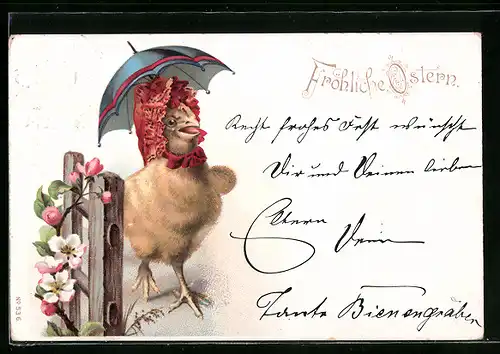 Fröhliche Ostern.
Recht frohes Fest wünscht
Dir und Deinen lieben
Eltern Dein
Tante Bienengraber
No 536